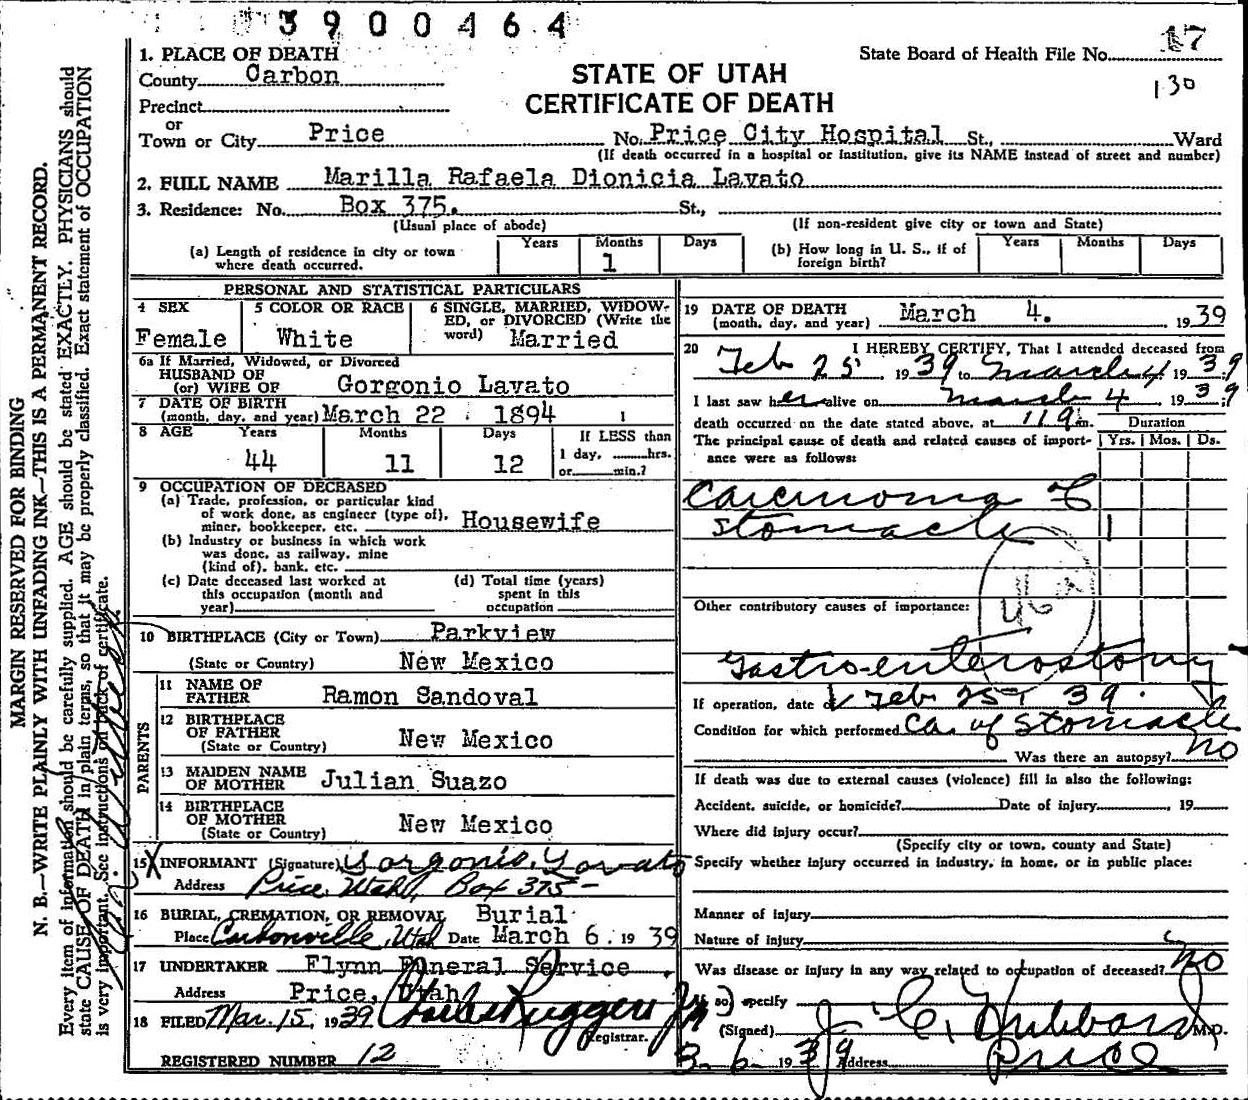 3900464
State Board of Health File No. 17
130
STATE OF UTAH
CERTIFICATE OF DEATH
1. PLACE OF DEATH
County Carbon
Precinct
or
Town or City Price No. Price City Hospital St., Ward
(If death occurred in a hospital or institution, give its NAME instead of street and number)
2. FULL NAME Marilla Rafaela Dionicia Lavato
3. Residence: No. Box 375. St.,
(Usual place of abode) (If non-resident give city or town and State)
(a) Length of residence in city or town where death occurred. Years Months 1 Days
(b) How long in U. S., if of foreign birth? Years Months Days
PERSONAL AND STATISTICAL PARTICULARS
4 SEX Female
5 COLOR OR RACE White
6 SINGLE, MARRIED, WIDOWED, or DIVORCED (Write the word) Married
6a If Married, Widowed, or Divorced
HUSBAND OF
(or) WIFE OF Gorgonio Lavato
7 DATE OF BIRTH
(month, day, and year) March 22 1894
8 AGE Years 44 Months 11 Days 12 If LESS than 1 day, hrs. or min.?
9 OCCUPATION OF DECEASED
(a) Trade, profession, or particular kind
of work done, as engineer (type of),
miner, bookkeeper, etc. Housewife
(b) Industry or business in which work
was done, as railway, mine
(kind of), bank, etc.
(c) Date deceased last worked at
this occupation (month and
year)
(d) Total time (years)
spent in this
occupation
10 BIRTHPLACE (City or Town) Parkview
(State or Country) New Mexico
PARENTS
11 NAME OF FATHER Ramon Sandoval
12 BIRTHPLACE OF FATHER
(State or Country) New Mexico
13 MAIDEN NAME OF MOTHER Julian Suazo
14 BIRTHPLACE OF MOTHER
(State or Country) New Mexico
15 X INFORMANT (Signature) Gorgonio Lovato
Address Price, Utah, Box 375
16 BURIAL, CREMATION, OR REMOVAL Burial
Place Carbonville, Utah Date March 6. 1939
17 UNDERTAKER Flynn Funeral Service
Address Price, Utah
18 FILED Mar. 15, 1939 Charles Ruggeri Jr
Registrar.
REGISTERED NUMBER 12
19 DATE OF DEATH
(month, day, and year) March 4. 1939
20 I HEREBY CERTIFY, That I attended deceased from
Feb 25, 1939 to March 4 1939
I last saw her alive on March 4, 1939
death occurred on the date stated above, at 11 9 m.
Duration
The principal cause of death and related causes of importance were as follows: Yrs. Mos. Ds.
Carcinoma of
stomach 1
46
Other contributory causes of importance:
Gastro-enterostomy
If operation, date of Feb 25, 39.
Condition for which performed Ca. of Stomach
Was there an autopsy? no
If death was due to external causes (violence) fill in also the following:
Accident, suicide, or homicide? Date of injury , 19
Where did injury occur?
(Specify city or town, county and State)
Specify whether injury occurred in industry, in home, or in public place:
Manner of injury
Nature of injury
Was disease or injury in any way related to occupation of deceased? no
If so, specify
(Signed) J. C. Hubbard M.D.
3-6- 1939 Address Price
MARGIN RESERVED FOR BINDING
N. B.—WRITE PLAINLY WITH UNFADING INK—THIS IS A PERMANENT RECORD.
Every item of information should be carefully supplied. AGE should be stated EXACTLY. PHYSICIANS should
state CAUSE OF DEATH in plain terms, so that it may be properly classified. Exact statement of OCCUPATION
is very important. See instructions on back of certificate.